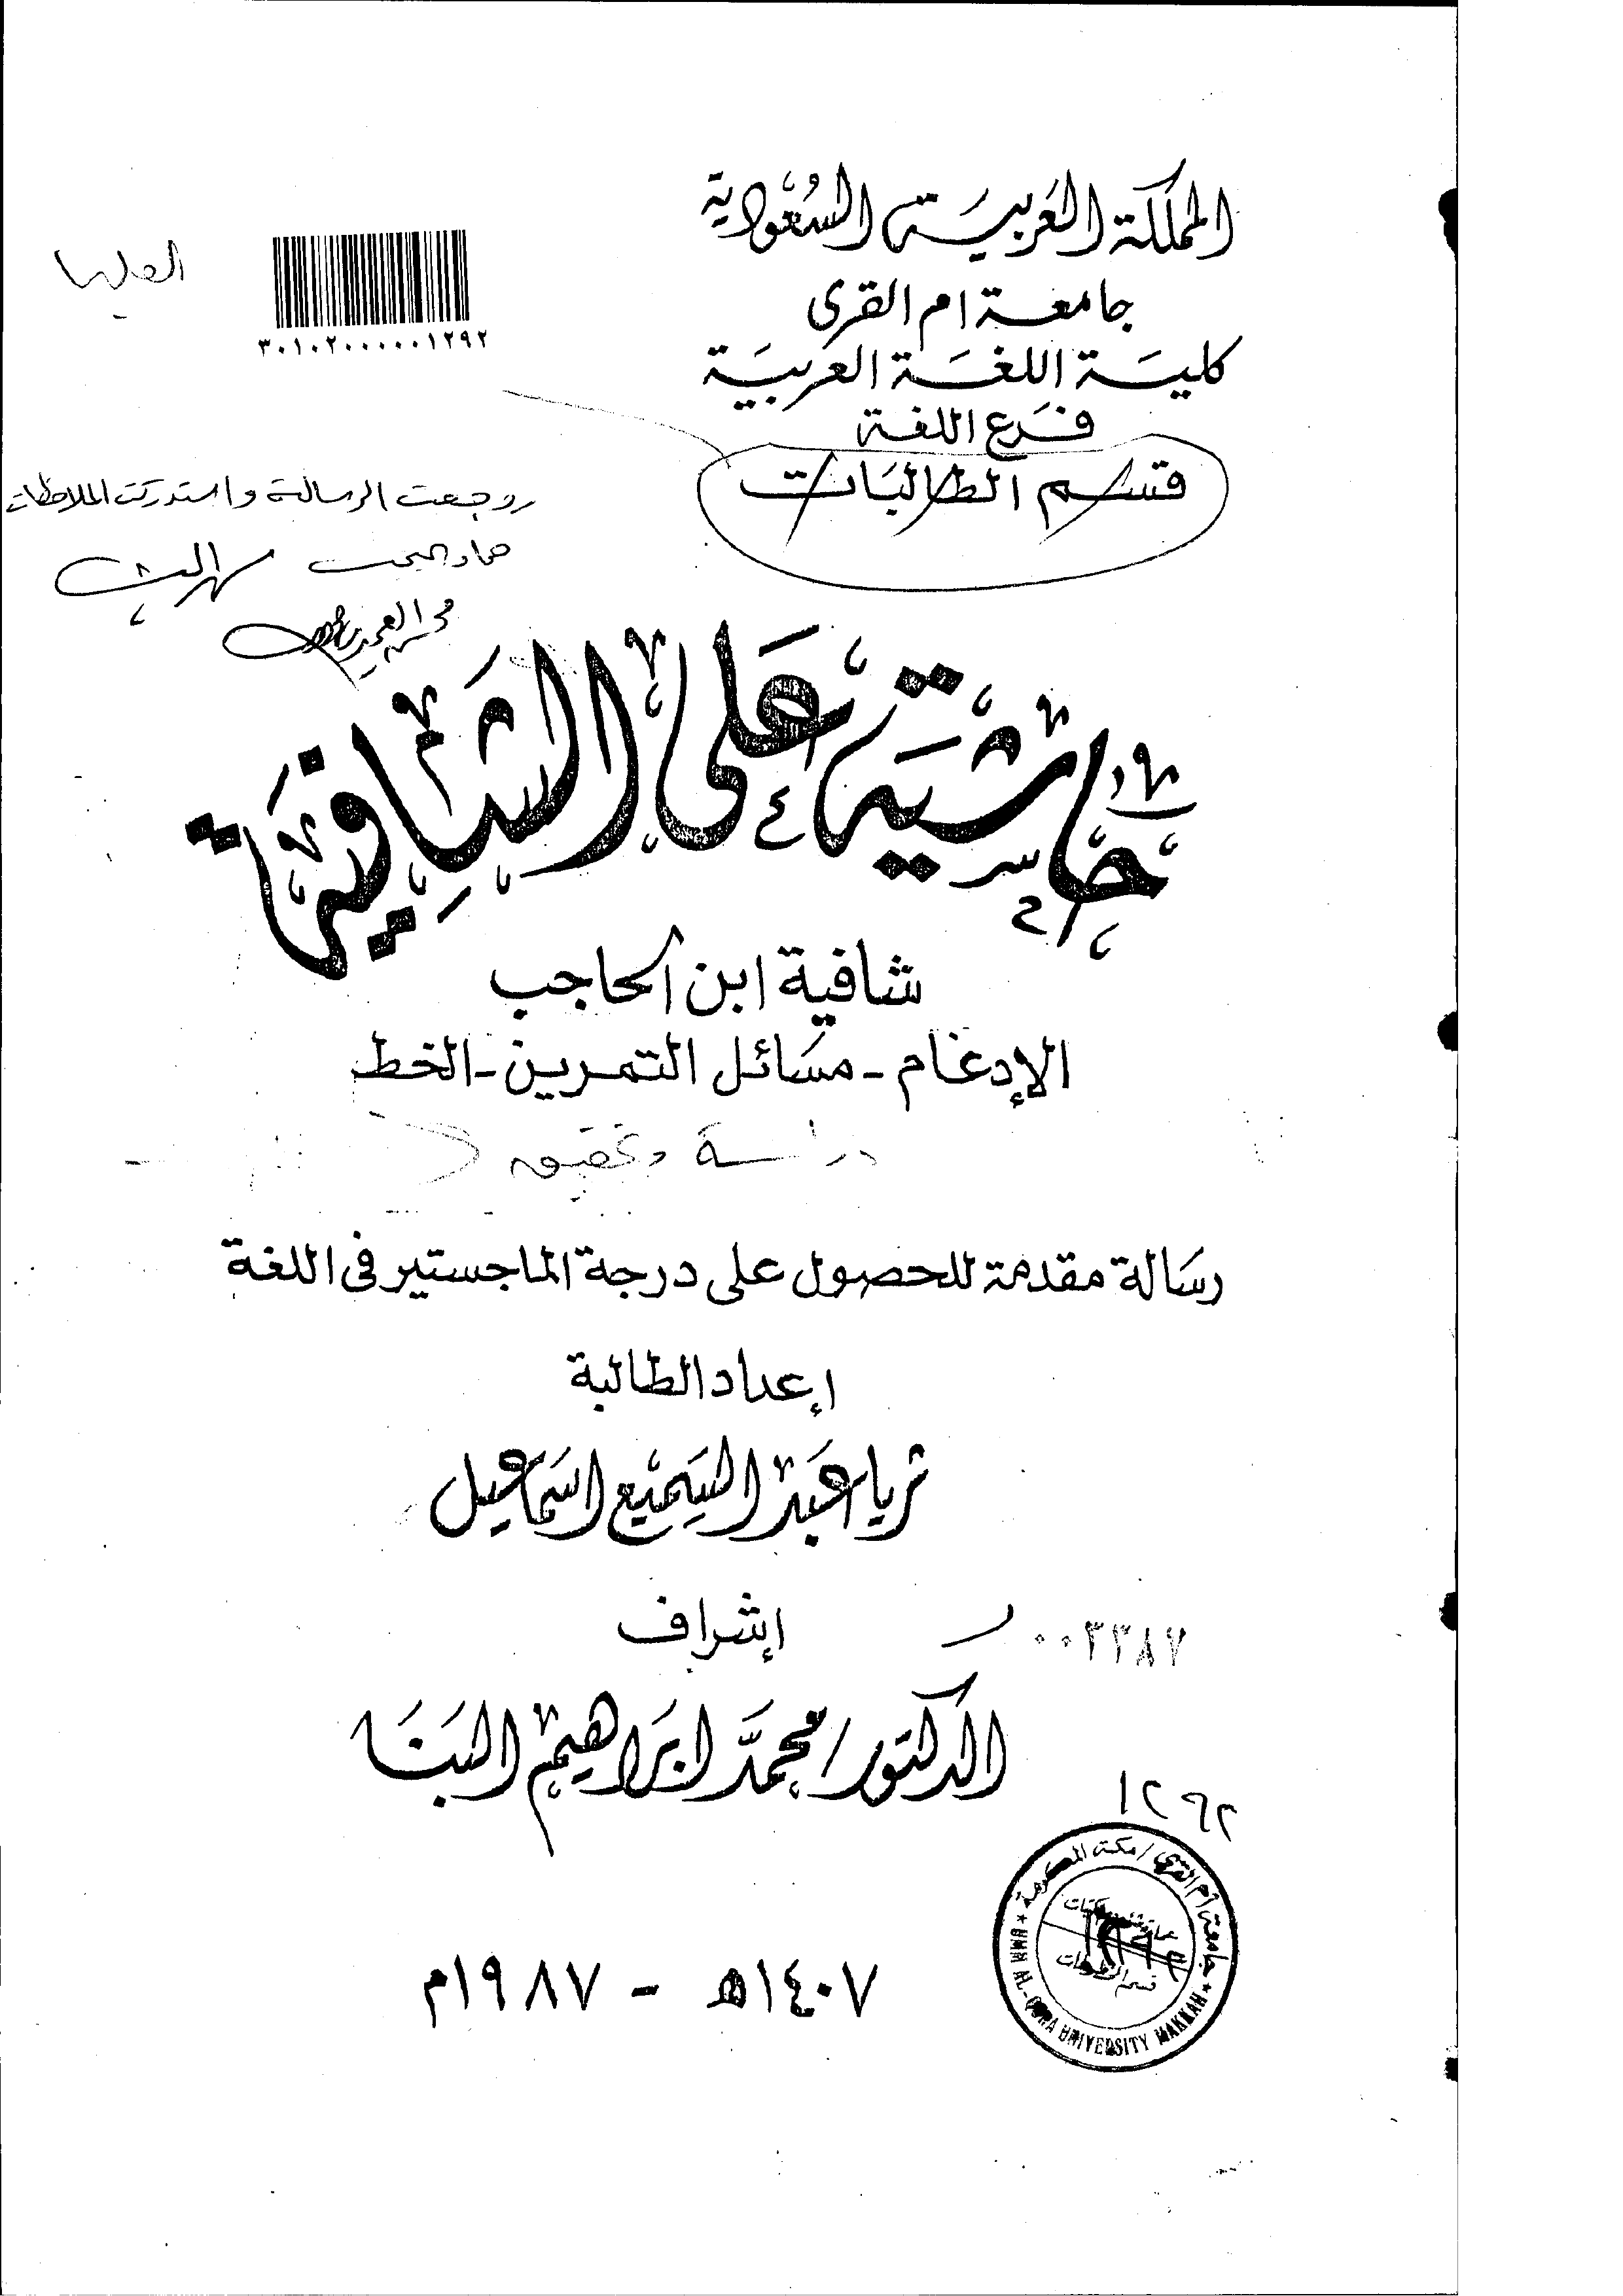 المملكة العربية السعودية
جامعة ام القرى
كلية اللغة العربية
فرع اللغة
قسم الطالبات
العليا
٣٠١٠٢٠٠٠٠٠١٢٩٢
روجعت الرسالة واستدركت الملاحظات
حَاشية عَلى الشَّافِيَة
شافية ابن الحاجب
الإدغام - مسَائل التمرين - الخط
دراسة وتحقيق
رسَالة مقدمة للحصول على درجة الماجستير فى اللغة
إعداد الطالبة
ثريا عبد السميع اسماعيل
إشراف
٠٠٣٣٨٧
الدكتور/ محمَّد ابراهيم البنا
١٢٩٢
جامعة أم القرى / مكة المكرمة
UMM AL-QURA UNIVERSITY MAKKAH
١٤٠٧هـ - ١٩٨٧م